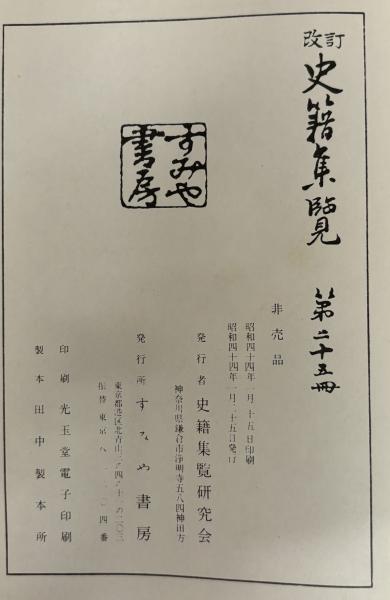 改訂
史籍集覧 第二十五冊
すみや
書房
非売品
昭和四十四年 月二十五日印刷
昭和四十四年 月二十五日発行
発行者 史籍集覧研究会
神奈川県鎌倉市浄明寺五八四神田方
発行所 すみや書房
東京都港区北青山三ノ四ノ十一ノ二〇三
振替 東京 四番
印刷 光玉堂電子印刷
製本 田中製本所